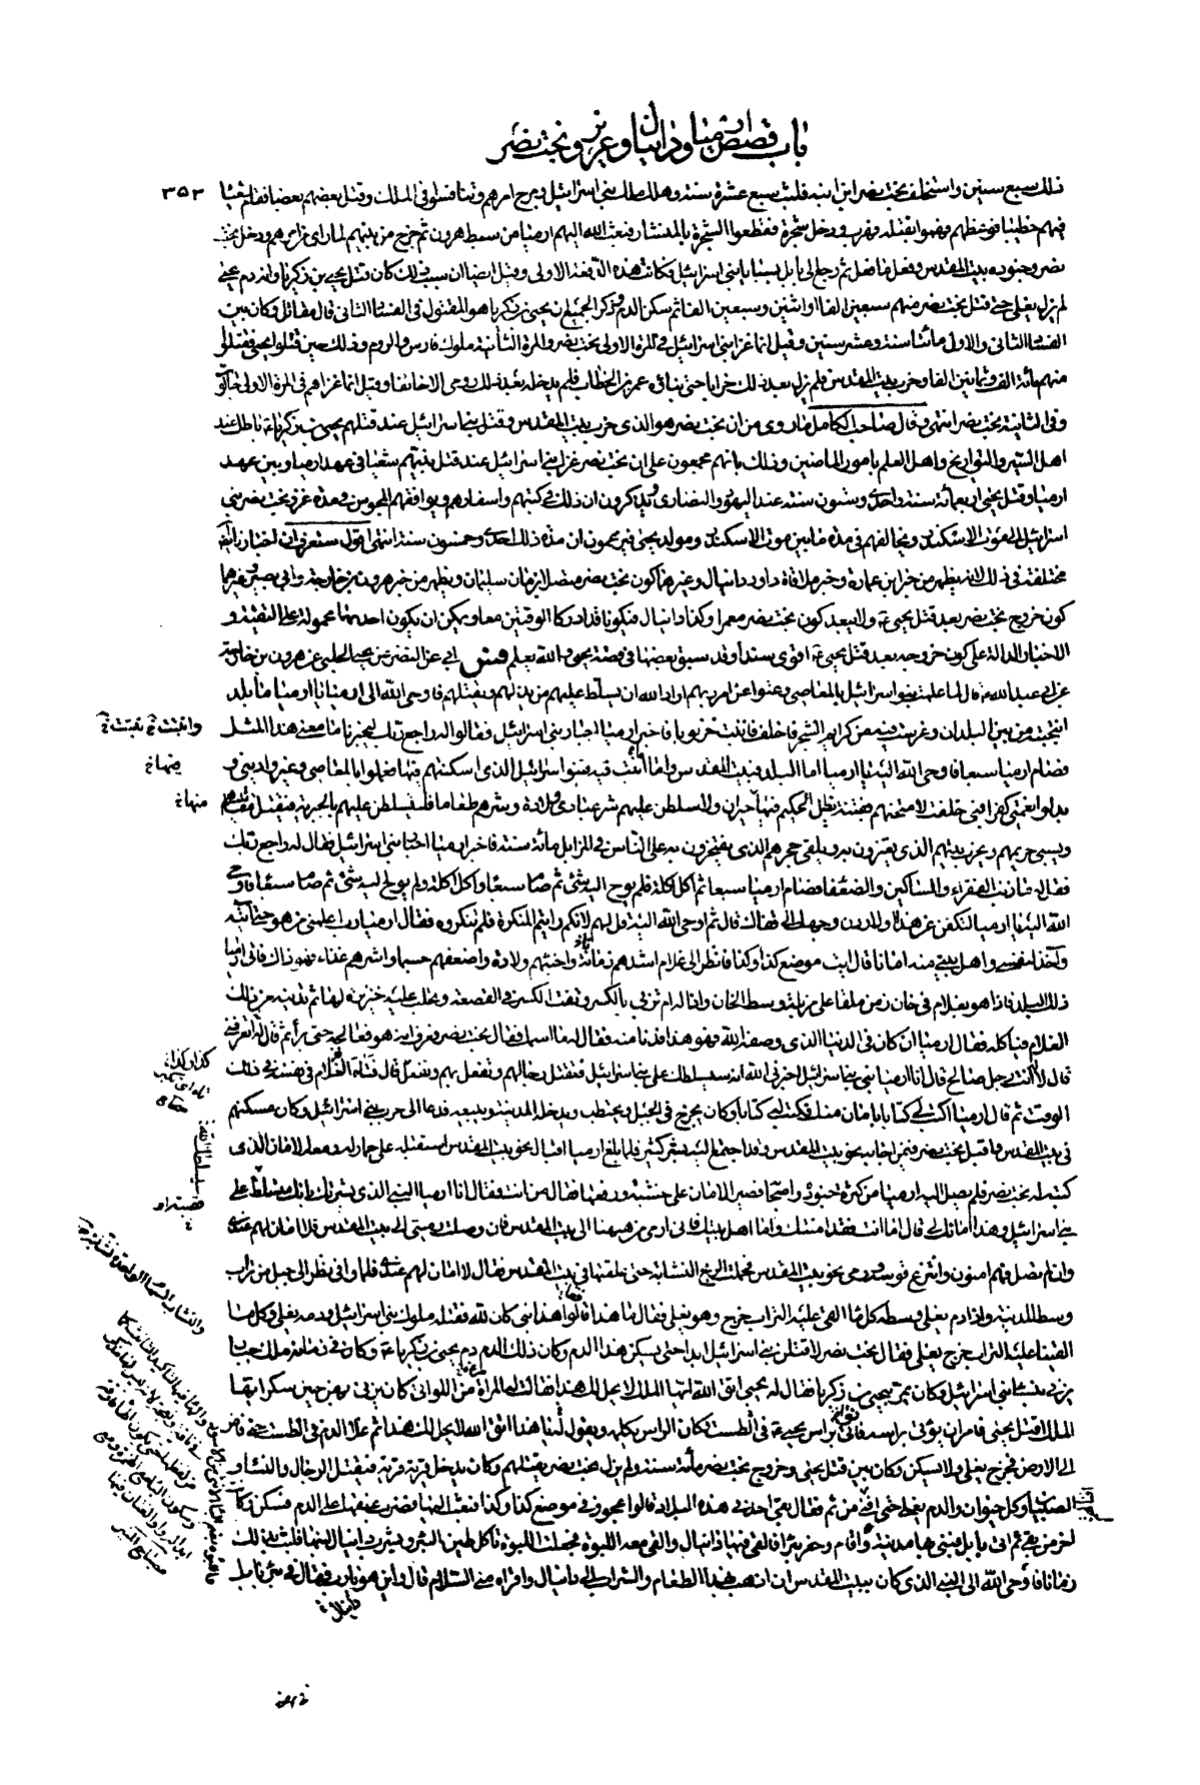 باب قصص ارميا و دانيال و عزير و بخت نصر
٣٥٣
ذلك سبع سنين واستخلف بخت نصر ابن ابنه فلبث سبع عشرة سنة وهلك ملك بني اسرائيل ومرج امرهم وتنافسوا في الملك وقتل بعضهم بعضا فقام شعيا
فيهم خطيبا فوعظهم فهموا بقتله فهرب ودخل شجرة فقطعوا الشجرة بالمنشار فبعث الله اليهم ارميا من سبط هرون ثم خرج من بينهم لما راى من امرهم ودخل بخت
نصر وجنوده بيت المقدس وفعل ما فعل ثم رجع الى بابل بسبايا بني اسرائيل فكانت هذه الدفعة الاولى وقيل ايضا ان سبب ذلك كان قتل يحيى بن زكريا وانه دم يحيى
لم يزل يغلى حتى قتل بخت نصر منهم سبعين الفا او اثنين وسبعين الفا ثم سكن الدم وذكر الجميع ان يحيى بن زكريا هو المقتول في الفساد الثاني قال مقاتل وكان بين
الفساد الثاني والاول مائتا سنة وعشر سنين وقيل انما غزا بني اسرائيل في المرة الاولى بخت نصر والمرة الثانية ملوك فارس والروم وذلك حين قتلوا يحيى فقتلوا
منهم مائة الف وثمانين الفا وخرب بيت المقدس فلم يزل بعد ذلك خرابا حتى بناه عمر بن الخطاب فلم يدخله بعد ذلك رومى الا خائفا وقيل انما غزاهم في المرة الاولى جالوت
وفي الثانية بخت نصر انتهى وقال صاحب الكامل ما روى من ان بخت نصر هو الذي خرب بيت المقدس وقتل بني اسرائيل عند قتلهم يحيى بن زكريا باطل عند
اهل السير والتواريخ واهل العلم بامور الماضين وذلك بانهم مجمعون على ان بخت نصر غزا بني اسرائيل عند قتل نبيهم شعيا في عهد ارميا وبين عهد
ارميا وقتل يحيى اربعمائة سنة واحدى وستون سنة عند اليهود والنصارى ويذكرون ان ذلك في كتبهم واسفارهم ويوافقهم المجوس في مدة غزو بخت نصر بني
اسرائيل الى موت الاسكندر ويخالفهم في مدة ما بين موت الاسكندر ومولد يحيى فيزعمون ان مدة ذلك احدى وخمسون سنة انتهى اقول ستعرف ان اخبارنا ايضا
مختلفة في ذلك لانه يظهر من خبر ابن عمارة وخبر ملاقاة داود دانيال وغيرهما كون بخت نصر متصلا بزمان سليمان ويظهر من خبر هرون بن خارجة وابي بصير وغيرهما
كون خروج بخت نصر بعد قتل يحيى ع ولا يبعد كون بخت نصر معمرا وكذا دانيال فيكونا قد ادركا الوقتين معا ويمكن ان يكون احدهما محمولة على التقية و
الاخبار الدالة على كون خروجه بعد قتل يحيى ع اقوى سندا وقد سبق بعضها في قصة يحيى والله يعلم ابي عن النضر عن يحيى الحلبي عن هرون بن خارجة
عن ابي عبد الله ع قال لما عملت بنو اسرائيل بالمعاصي وعتوا عن امر ربهم اراد الله ان يسلط عليهم من يذلهم ويقتلهم فاوحى الله الى ارميا يا ارميا ما بلد
انتجبته من بين البلدان وغرست فيه من كرائم الشجر فاخلف فانبت خرنوبا فاخبر ارميا احبار بني اسرائيل فقالوا له راجع ربك ليخبرنا ما معنى هذا المثل
فصام ارميا سبعا فاوحى الله اليه يا ارميا اما البلد فبيت المقدس واما ما انبت فيه فبنو اسرائيل الذي اسكنتهم فيها فعملوا بالمعاصي وغيروا ديني و
بدلوا نعمتي كفرا فبي حلفت لامتحننهم بفتنة يظل الحكيم فيها حيران ولاسلطن عليهم شر عبادي ولادة وشرهم طعاما فليتسلطن عليهم بالجبرية فيقتل مقاتلهم
ويسبى حريمهم ويخرب بيتهم الذي يغترون به ويلقى حجرهم الذي يفتخرون به على الناس في المزابل مائة سنة فاخبر ارميا احبار بني اسرائيل فقالوا له راجع ربك
فقل له ما ذنب الفقراء والمساكين والضعفاء فصام ارميا سبعا ثم اكل اكلة فلم يوح اليه شئ ثم صام سبعا واكل اكلة ولم يوح اليه شئ ثم صام سبعا فاوحى
الله اليه يا ارميا لتكفن عن هذا او لاردن وجهك الى قفاك قال ثم اوحى الله اليه قل لهم لانكم رايتم المنكر فلم تنكروه فقال ارميا رب اعلمني من هو حتى آتيه
وآخذ لنفسي واهل بيتي منه امانا قال ايت موضع كذا وكذا فانظر الى غلام اشدهم زمانة واخبثهم ولادة واضعفهم جسما واشرهم غذاء فهو ذاك فاتى ارميا
ذلك البلد فاذا هو بغلام في خان زمن ملقى على مزبلة وسط الخان واذا له ام ترمى بالكسر وتفت الكسر في القصعة وتحلب عليه خنزيرة لها ثم تدنيه من ذلك
الغلام فياكله فقال ارميا ان كان في الدنيا الذي وصفه الله فهو هذا فدنا منه فقال له ما اسمك فقال بخت نصر فعرف انه هو فعالجه حتى برأ ثم قال له اتعرفني
قال لا انت رجل صالح قال انا ارميا نبي بني اسرائيل اخبرني الله انه سيسلطك على بني اسرائيل فتقتل رجالهم وتفعل بهم وتفعل قال فتاه الغلام في نفسه في ذلك
الوقت ثم قال ارميا اكتب لي كتابا بامان منك فكتب له كتابا وكان يخرج في الجبل ويحتطب ويدخل المدينة ويبيعه فدعا الى حرب بني اسرائيل وكان مسكنهم
في بيت المقدس واقبل بخت نصر فيمن اجابه نحو بيت المقدس وقد اجتمع اليه بشر كثير فلما بلغ ارميا اقباله نحو بيت المقدس استقبله على حمار له ومعه الامان الذي
كتبه له بخت نصر فلم يصل اليه ارميا من كثرة جنوده واصحابه فصير الامان على خشبة ورفعها فقال من انت فقال انا ارميا النبي الذي بشرتك بانك ستسلط على
بني اسرائيل وهذا امانك لي قال اما انت فقد امنتك واما اهل بيتك فاني ارمى من هيهنا الى بيت المقدس فان وصلت رميتي الى بيت المقدس فلا امان لهم عندي
وان لم تصل فهم امنون وانتزع قوسه ورمى نحو بيت المقدس فحملت الريح النشابة حتى علقتها في بيت المقدس فقال لا امان لهم عندي فلما وافى نظر الى جبل من تراب
وسط المدينة واذا دم يغلى وسطه كلما القى عليه التراب خرج وهو يغلى فقال ما هذا قالوا هذا نبي كان لله فقتله ملوك بني اسرائيل ودمه يغلى وكلما
القينا عليه التراب خرج يغلى فقال بخت نصر لاقتلن بني اسرائيل ابدا حتى يسكن هذا الدم وكان ذلك الدم دم يحيى بن زكريا ع وكان في زمانه ملك جبار
يزني بنساء بني اسرائيل وكان يمر بيحيى بن زكريا فقال له يحيى اتق الله ايها الملك لا يحل لك هذا فقالت له المرأة من اللواتي كان يزني بهن حين سكر ايها
الملك اقتل يحيى فامر ان يؤتى براسه فاتي براس يحيى ع في الطست وكان الراس يكلمه ويقول له يا هذا اتق الله لا يحل لك هذا ثم غلا الدم في الطست حتى فاض
الى الارض فخرج يغلى ولا يسكن وكان بين قتل يحيى وخروج بخت نصر مائة سنة ولم يزل بخت نصر يقتلهم وكان يدخل قرية قرية فيقتل الرجال والنساء و
الصبيان وكل حيوان والدم يغلى حتى افنى من ثم فقال بقي احد في هذه البلاد قالوا عجوز في موضع كذا وكذا فبعث اليها فضرب عنقها على الدم فسكن وكانت
اخر من بقي ثم اتى بابل فبنى بها مدينة واقام وحفر بئرا فالقى فيها دانيال والقى معه اللبوة فجعلت اللبوة تاكل طين البئر ويشرب دانيال لبنها فلبث بذلك
زمانا فاوحى الله الى النبي الذي كان ببيت المقدس ان اذهب بهذا الطعام والشراب الى دانيال واقراه مني السلام قال واين هو يا رب فقال في بئر بابل
دانيال
منها خ
منها خ